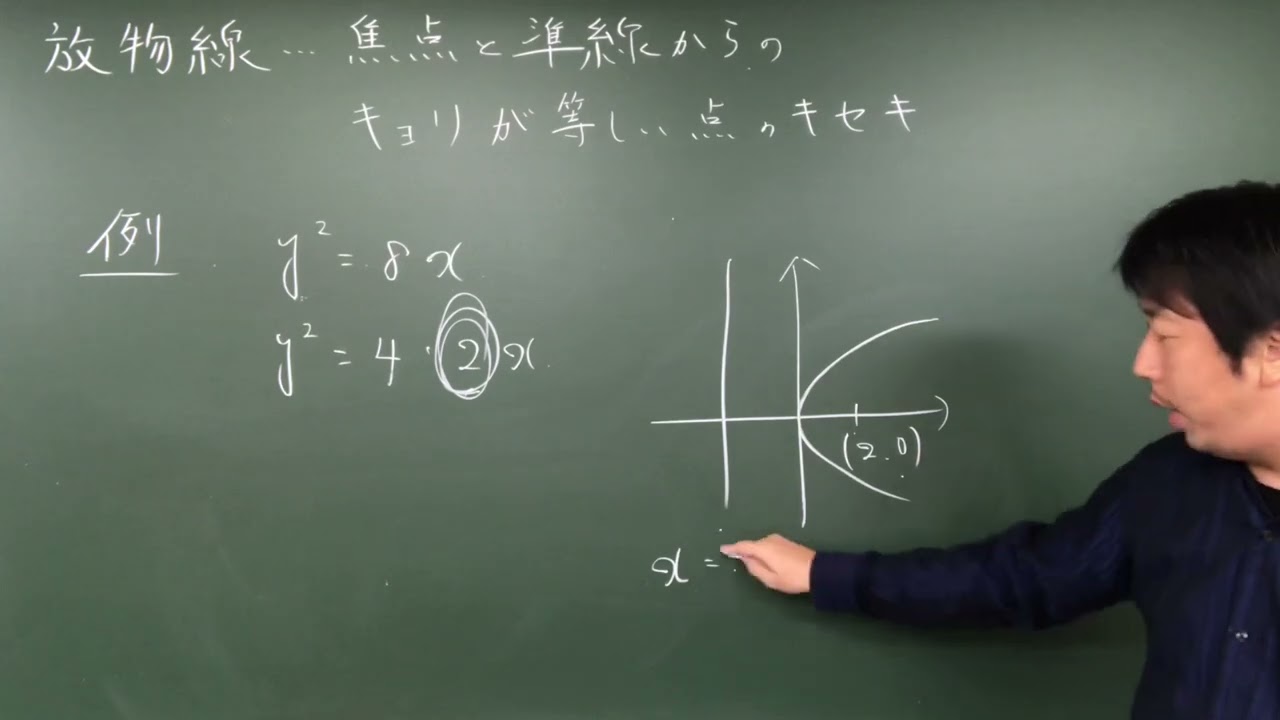 放物線…焦点と準線からの
キョリが等しい点のキセキ
例
y² = 8x
y² = 4・2x
(2.0)
x =